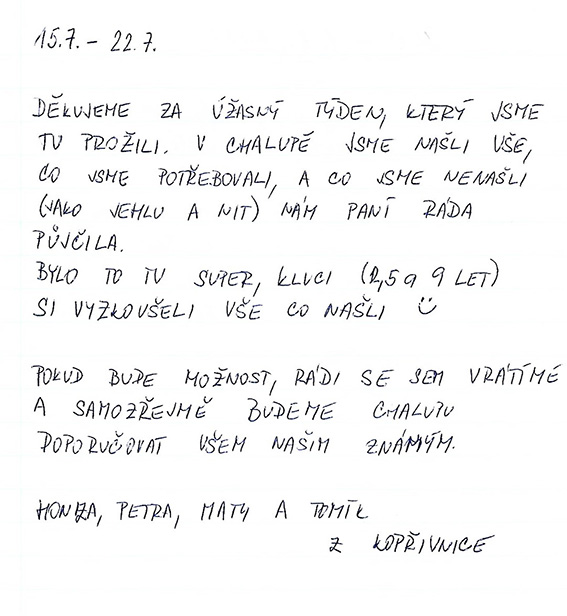 15.7. - 22.7.
DĚKUJEME ZA ÚŽASNÝ TÝDEN, KTERÝ JSME
TU PROŽILI. V CHALUPĚ JSME NAŠLI VŠE,
CO JSME POTŘEBOVALI, A CO JSME NENAŠLI
(JAKO JEHLU A NIT) NÁM PANÍ RÁDA
PŮJČILA.
BYLO TO TU SUPER, KLUCI (2,5 a 9 LET)
SI VYZKOUŠELI VŠE CO NAŠLI ☺
POKUD BUDE MOŽNOST, RÁDI SE SEM VRÁTÍME
A SAMOZŘEJMĚ BUDEME CHALUPU
DOPORUČOVAT VŠEM NAŠIM ZNÁMÝM.
HONZA, PETRA, MATY A TOMÍK
Z KOPŘIVNICE